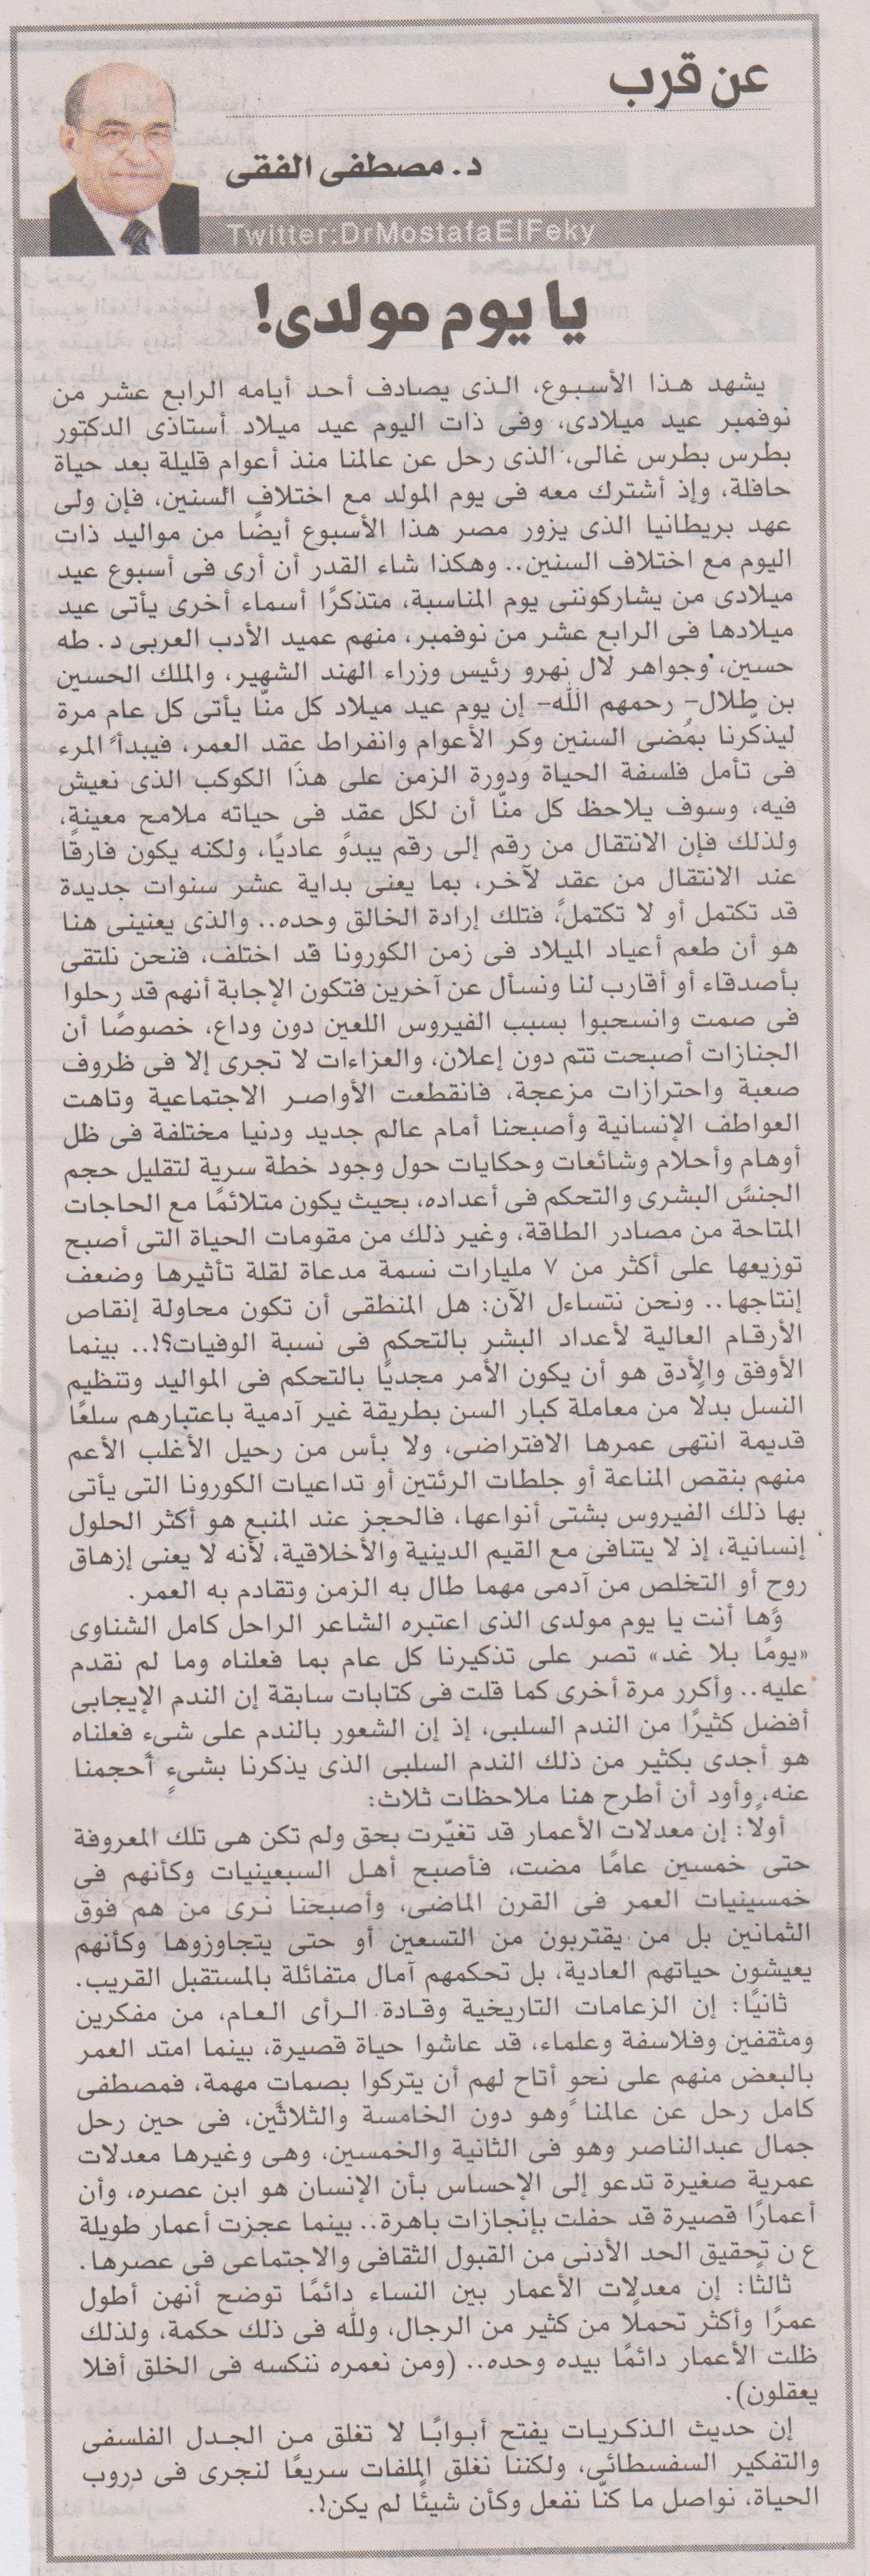 عن قرب
د. مصطفى الفقى
Twitter:DrMostafaElFeky
يا يوم مولدى!
يشهد هذا الأسبوع، الذى يصادف أحد أيامه الرابع عشر من
نوفمبر عيد ميلادى، وفى ذات اليوم عيد ميلاد أستاذى الدكتور
بطرس بطرس غالى، الذى رحل عن عالمنا منذ أعوام قليلة بعد حياة
حافلة، وإذ أشترك معه فى يوم المولد مع اختلاف السنين، فإن ولى
عهد بريطانيا الذى يزور مصر هذا الأسبوع أيضًا من مواليد ذات
اليوم مع اختلاف السنين.. وهكذا شاء القدر أن أرى فى أسبوع عيد
ميلادى من يشاركوننى يوم المناسبة، متذكرًا أسماء أخرى يأتى عيد
ميلادها فى الرابع عشر من نوفمبر، منهم عميد الأدب العربى د. طه
حسين، وجواهر لال نهرو رئيس وزراء الهند الشهير، والملك الحسين
بن طلال- رحمهم الله- إن يوم عيد ميلاد كل منّا يأتى كل عام مرة
ليذكّرنا بمُضى السنين وكر الأعوام وانفراط عقد العمر، فيبدأ المرء
فى تأمل فلسفة الحياة ودورة الزمن على هذا الكوكب الذى نعيش
فيه، وسوف يلاحظ كل منّا أن لكل عقد فى حياته ملامح معينة،
ولذلك فإن الانتقال من رقم إلى رقم يبدو عاديًا، ولكنه يكون فارقًا
عند الانتقال من عقد لآخر، بما يعنى بداية عشر سنوات جديدة
قد تكتمل أو لا تكتمل، فتلك إرادة الخالق وحده.. والذى يعنينى هنا
هو أن طعم أعياد الميلاد فى زمن الكورونا قد اختلف، فنحن نلتقى
بأصدقاء أو أقارب لنا ونسأل عن آخرين فتكون الإجابة أنهم قد رحلوا
فى صمت وانسحبوا بسبب الفيروس اللعين دون وداع، خصوصًا أن
الجنازات أصبحت تتم دون إعلان، والعزاءات لا تجرى إلا فى ظروف
صعبة واحترازات مزعجة، فانقطعت الأواصر الاجتماعية وتاهت
العواطف الإنسانية وأصبحنا أمام عالم جديد ودنيا مختلفة فى ظل
أوهام وأحلام وشائعات وحكايات حول وجود خطة سرية لتقليل حجم
الجنس البشرى والتحكم فى أعداده، بحيث يكون متلائمًا مع الحاجات
المتاحة من مصادر الطاقة، وغير ذلك من مقومات الحياة التى أصبح
توزيعها على أكثر من ٧ مليارات نسمة مدعاة لقلة تأثيرها وضعف
إنتاجها.. ونحن نتساءل الآن: هل المنطقى أن تكون محاولة إنقاص
الأرقام العالية لأعداد البشر بالتحكم فى نسبة الوفيات؟!.. بينما
الأوفق والأدق هو أن يكون الأمر مجديًا بالتحكم فى المواليد وتنظيم
النسل بدلًا من معاملة كبار السن بطريقة غير آدمية باعتبارهم سلعًا
قديمة انتهى عمرها الافتراضى، ولا بأس من رحيل الأغلب الأعم
منهم بنقص المناعة أو جلطات الرئتين أو تداعيات الكورونا التى يأتى
بها ذلك الفيروس بشتى أنواعها، فالحجز عند المنبع هو أكثر الحلول
إنسانية، إذ لا يتنافى مع القيم الدينية والأخلاقية، لأنه لا يعنى إزهاق
روح أو التخلص من آدمى مهما طال به الزمن وتقادم به العمر.
وها أنت يا يوم مولدى الذى اعتبره الشاعر الراحل كامل الشناوى
«يومًا بلا غد» تصر على تذكيرنا كل عام بما فعلناه وما لم نقدم
عليه.. وأكرر مرة أخرى كما قلت فى كتابات سابقة إن الندم الإيجابى
أفضل كثيرًا من الندم السلبى، إذ إن الشعور بالندم على شىء فعلناه
هو أجدى بكثير من ذلك الندم السلبى الذى يذكرنا بشىء أحجمنا
عنه، وأود أن أطرح هنا ملاحظات ثلاث:
أولًا: إن معدلات الأعمار قد تغيّرت بحق ولم تكن هى تلك المعروفة
حتى خمسين عامًا مضت، فأصبح أهل السبعينيات وكأنهم فى
خمسينيات العمر فى القرن الماضى، وأصبحنا نرى من هم فوق
الثمانين بل من يقتربون من التسعين أو حتى يتجاوزوها وكأنهم
يعيشون حياتهم العادية، بل تحكمهم آمال متفائلة بالمستقبل القريب.
ثانيًا: إن الزعامات التاريخية وقادة الرأى العام، من مفكرين
ومثقفين وفلاسفة وعلماء، قد عاشوا حياة قصيرة، بينما امتد العمر
بالبعض منهم على نحو أتاح لهم أن يتركوا بصمات مهمة، فمصطفى
كامل رحل عن عالمنا وهو دون الخامسة والثلاثين، فى حين رحل
جمال عبدالناصر وهو فى الثانية والخمسين، وهى وغيرها معدلات
عمرية صغيرة تدعو إلى الإحساس بأن الإنسان هو ابن عصره، وأن
أعمارًا قصيرة قد حفلت بإنجازات باهرة.. بينما عجزت أعمار طويلة
ع ن تحقيق الحد الأدنى من القبول الثقافى والاجتماعى فى عصرها.
ثالثًا: إن معدلات الأعمار بين النساء دائمًا توضح أنهن أطول
عمرًا وأكثر تحملًا من كثير من الرجال، ولله فى ذلك حكمة، ولذلك
ظلت الأعمار دائمًا بيده وحده.. (ومن نعمره ننكسه فى الخلق أفلا
يعقلون).
إن حديث الذكريات يفتح أبوابًا لا تغلق من الجدل الفلسفى
والتفكير السفسطائى، ولكننا نغلق الملفات سريعًا لنجرى فى دروب
الحياة، نواصل ما كنّا نفعل وكأن شيئًا لم يكن!.